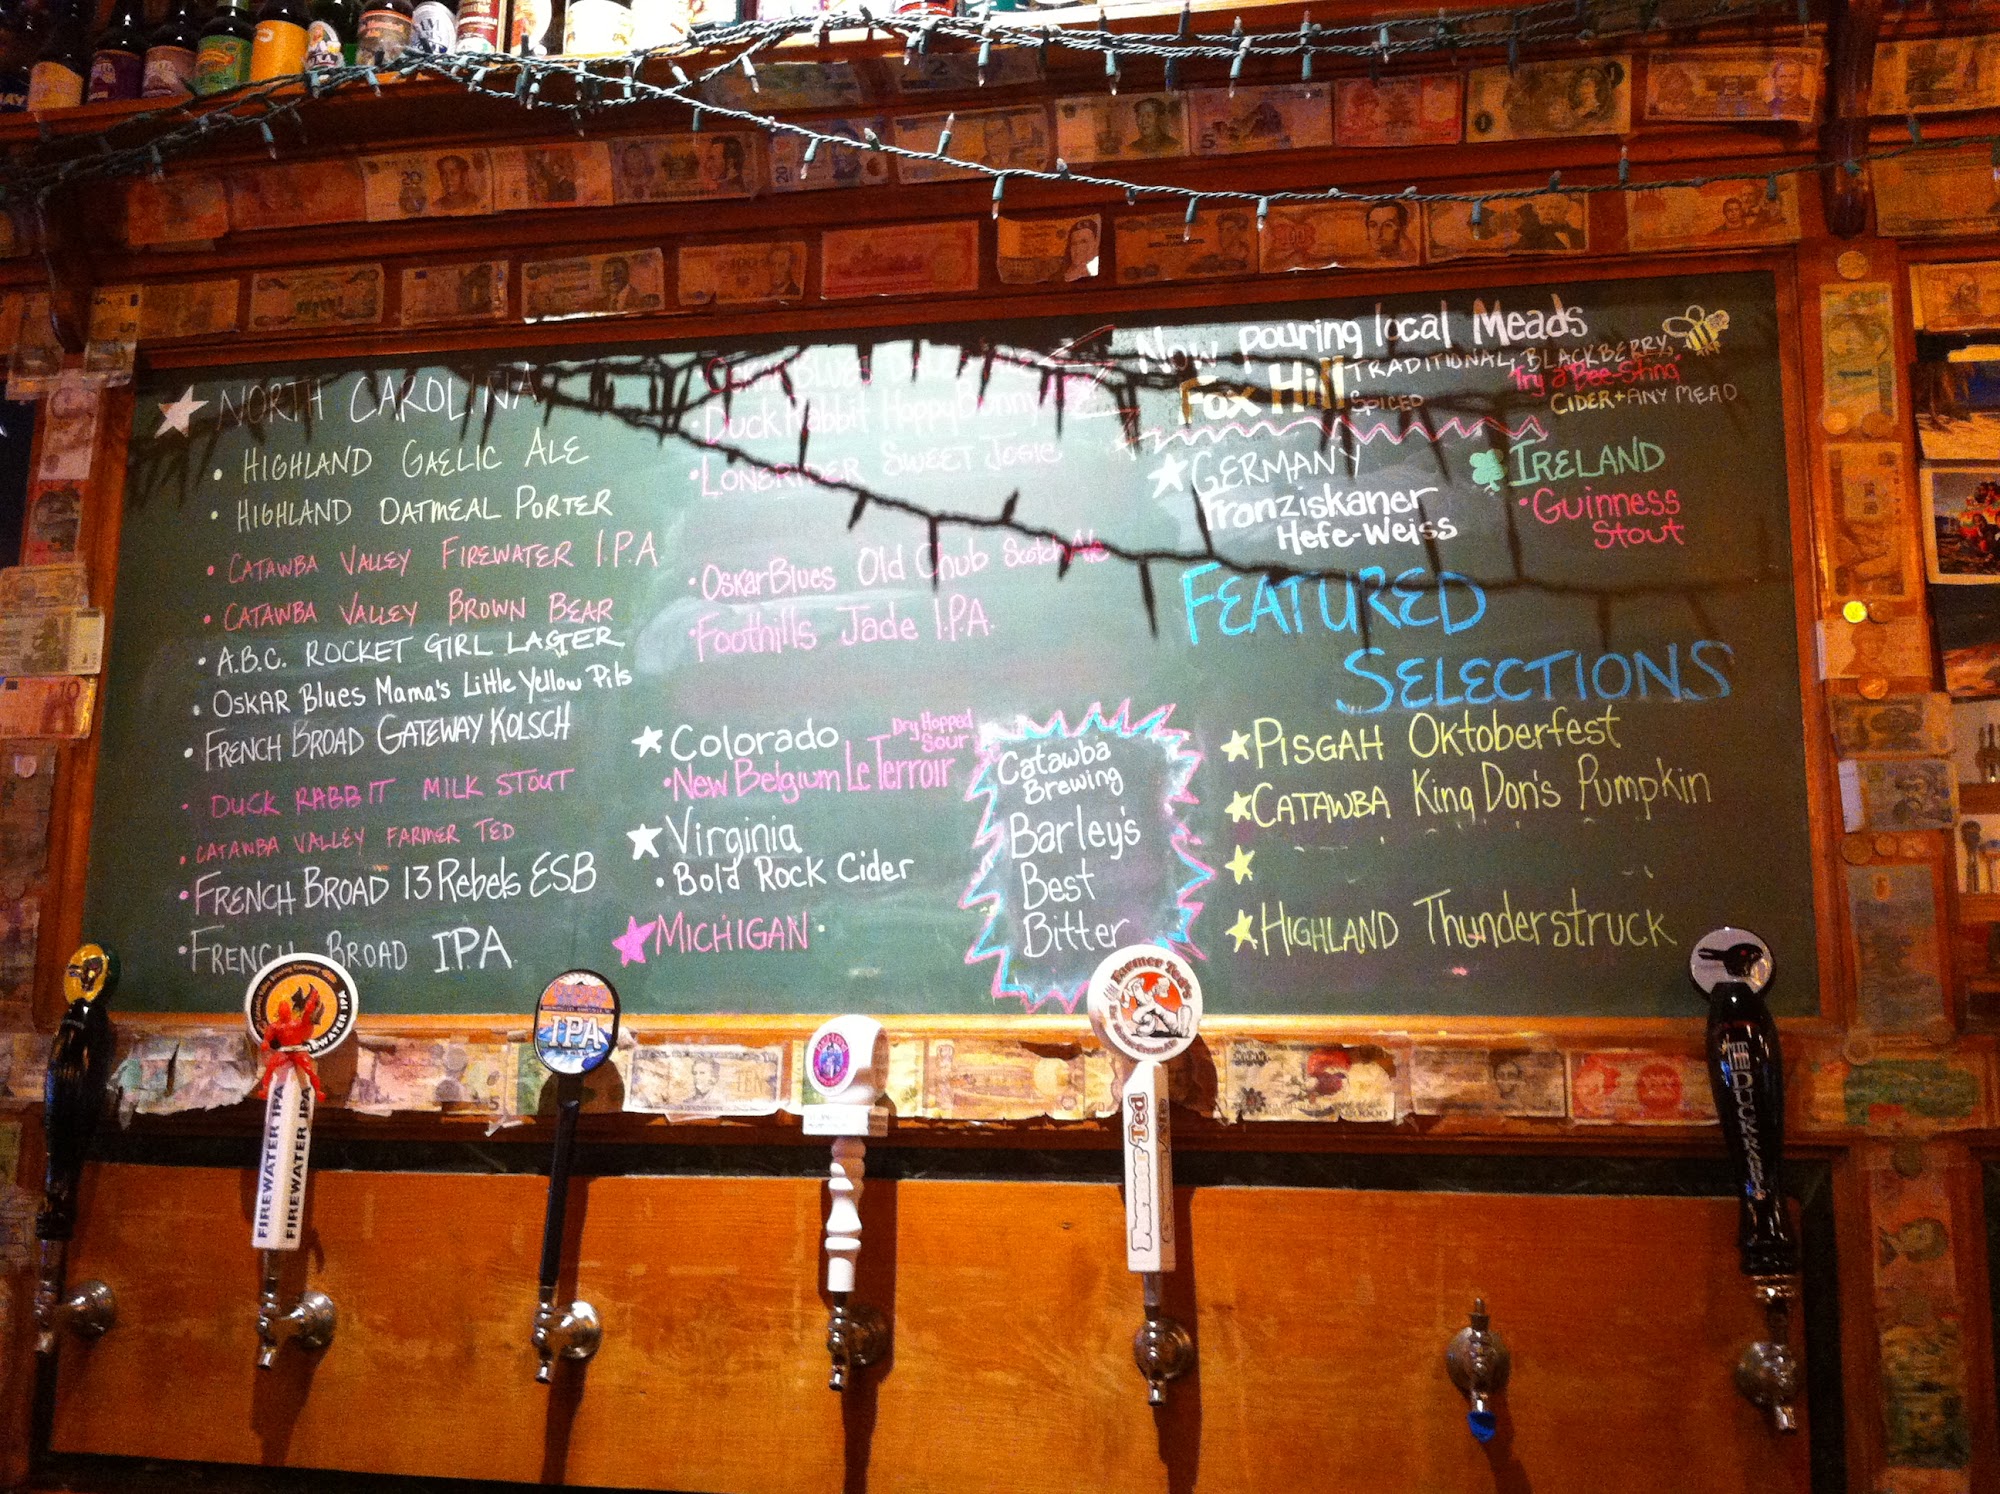 NORTH CAROLINA
• HIGHLAND GAELIC ALE
• HIGHLAND OATMEAL PORTER
• CATAWBA VALLEY FIREWATER I.P.A.
• CATAWBA VALLEY BROWN BEAR
• A.B.C. ROCKET GIRL LAGER
• OSKAR Blues Mama's Little Yellow Pils
• FRENCH BROAD GATEWAY KOLSCH
• DUCK RABBIT MILK STOUT
• CATAWBA VALLEY FARMER TED
• FRENCH BROAD 13 Rebels ESB
• FRENCH BROAD IPA
Oskar Blues
• Duck Rabbit Hoppy Bunny
• LONERIDER SWEET JOSIE
• Oskar Blues Old Chub Scotch Ale
• Foothills Jade I.P.A.
Colorado
Dry Hopped
Sour
• New Belgium Le Terroir
Virginia
• Bold Rock Cider
MICHIGAN
Catawba
Brewing
Barley's
Best
Bitter
Now pouring local Meads
Fox Hill
TRADITIONAL, BLACKBERRY,
SPICED
Try a Bee-Sting
CIDER + ANY MEAD
GERMANY
Franziskaner
Hefe-Weiss
IRELAND
• Guinness
Stout
FEATURED
SELECTIONS
PISGAH Oktoberfest
CATAWBA King Don's Pumpkin
HIGHLAND Thunderstruck
FIREWATER IPA
FIREWATER IPA
IPA
Farmer Ted's
Farmer Ted
THE DUCK RABBIT